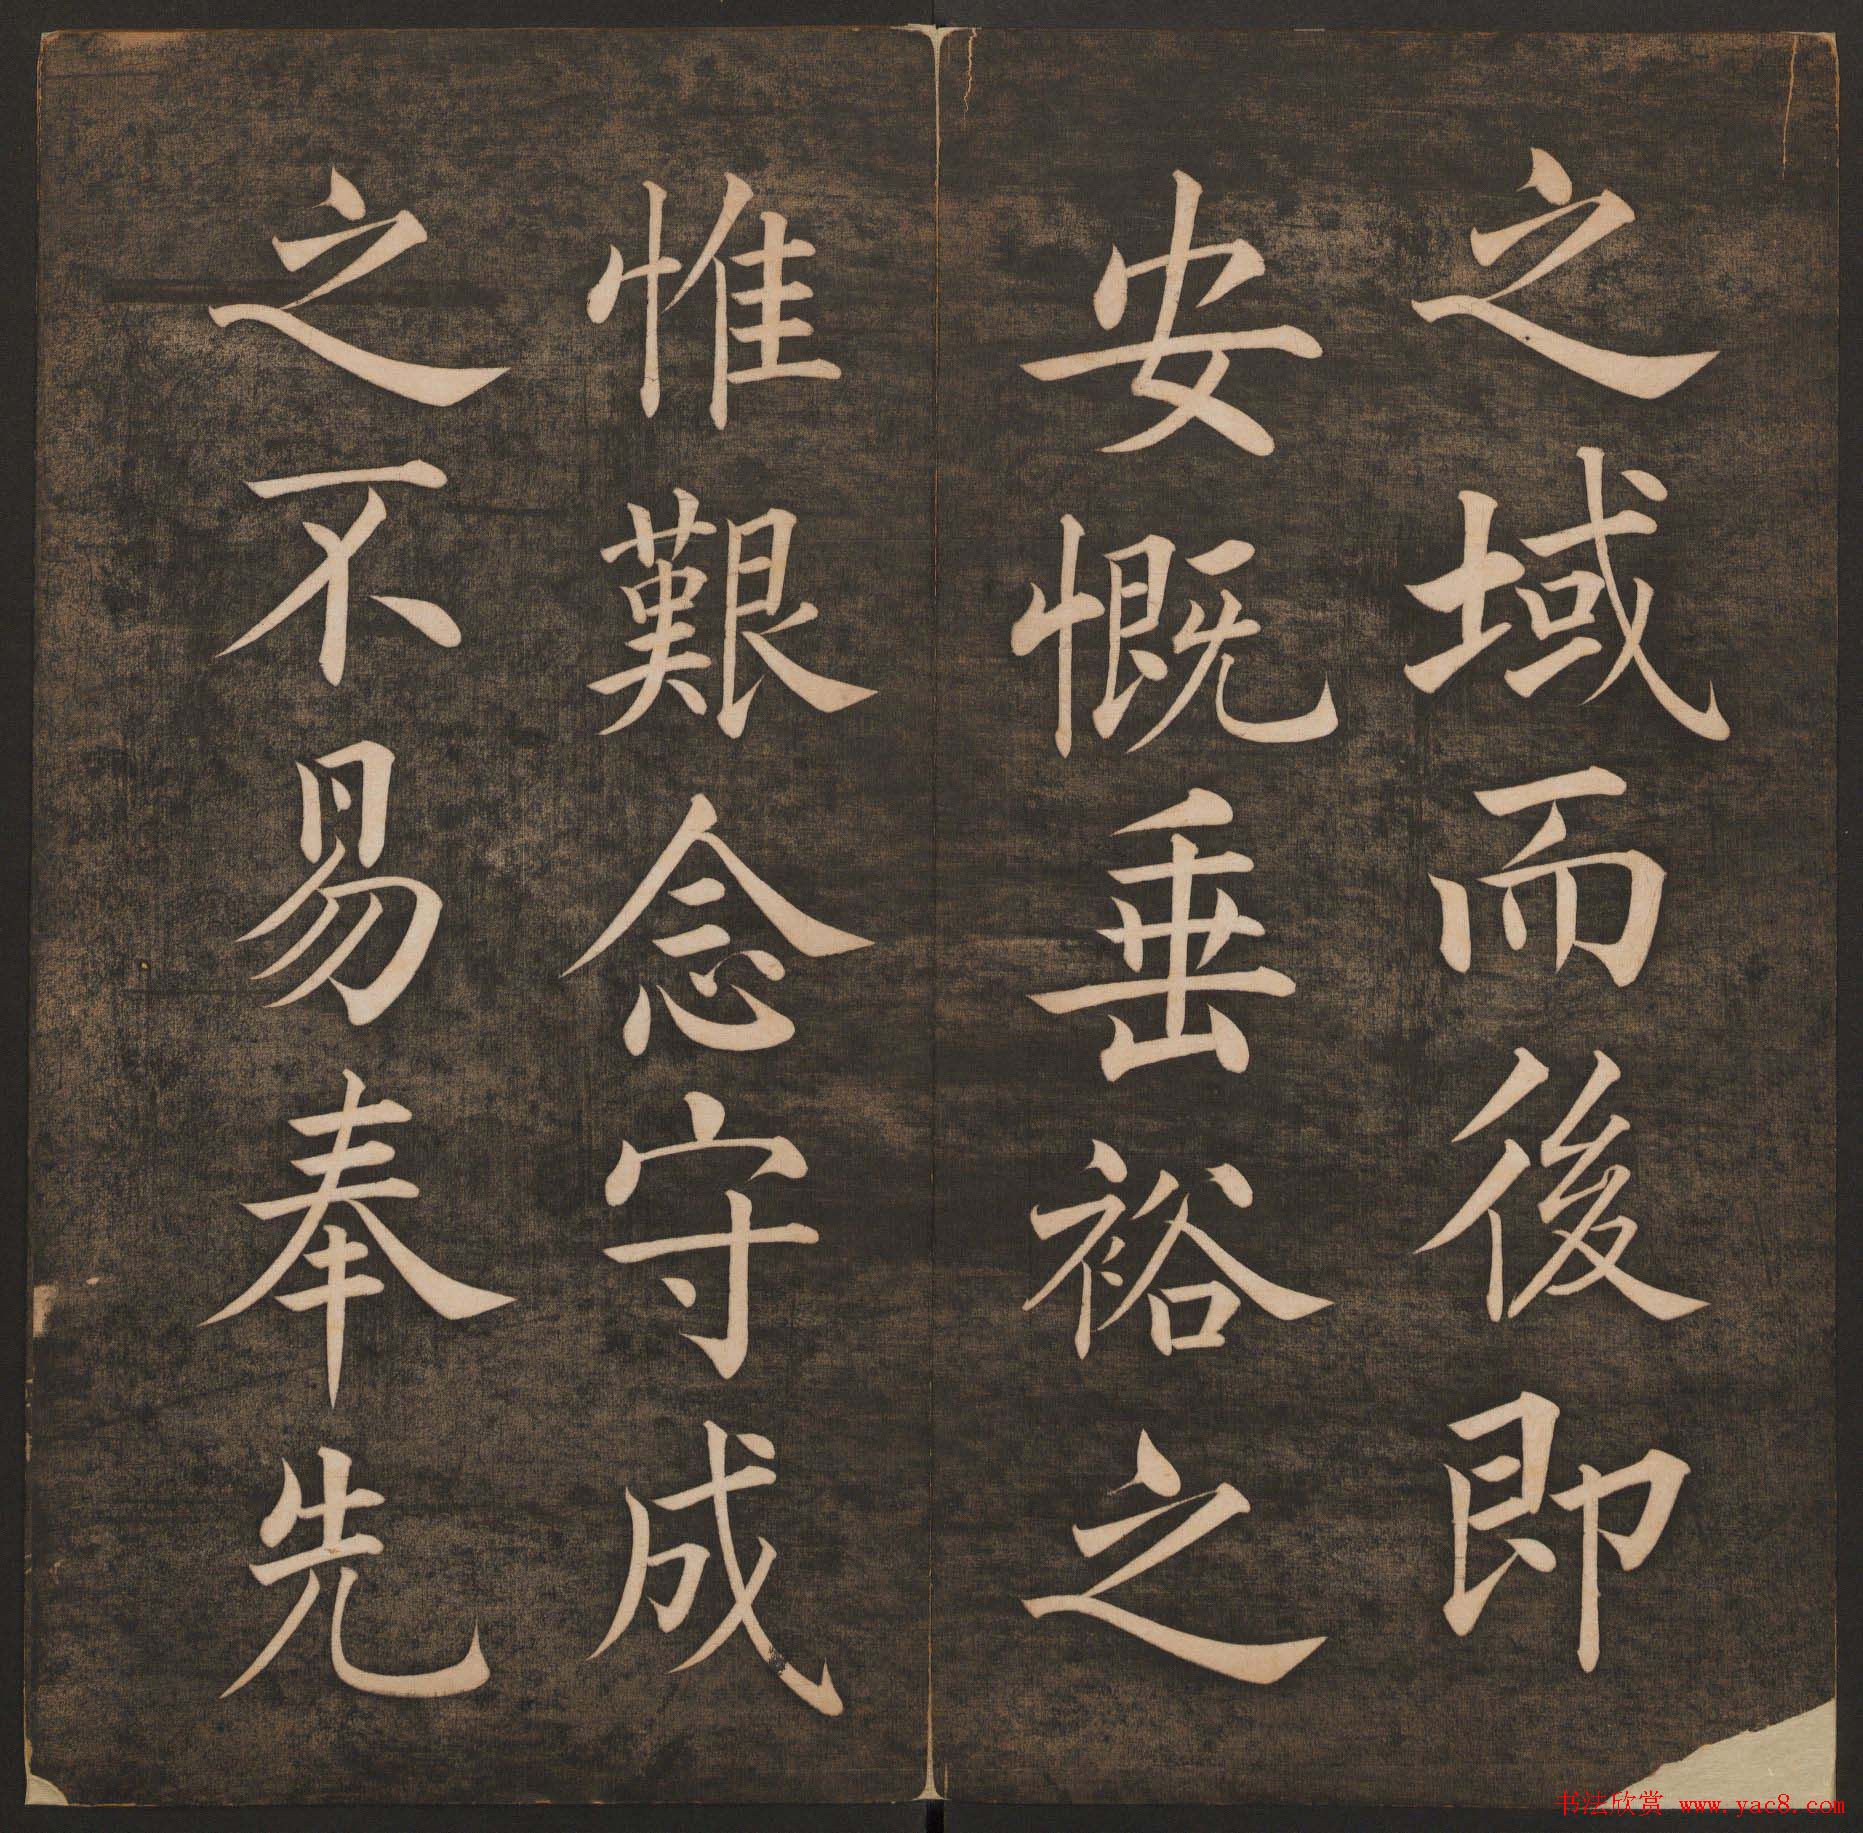 之域而後即
安慨垂裕之
惟艱念守成
之不易奉先
书法欣赏 www.yac8.com